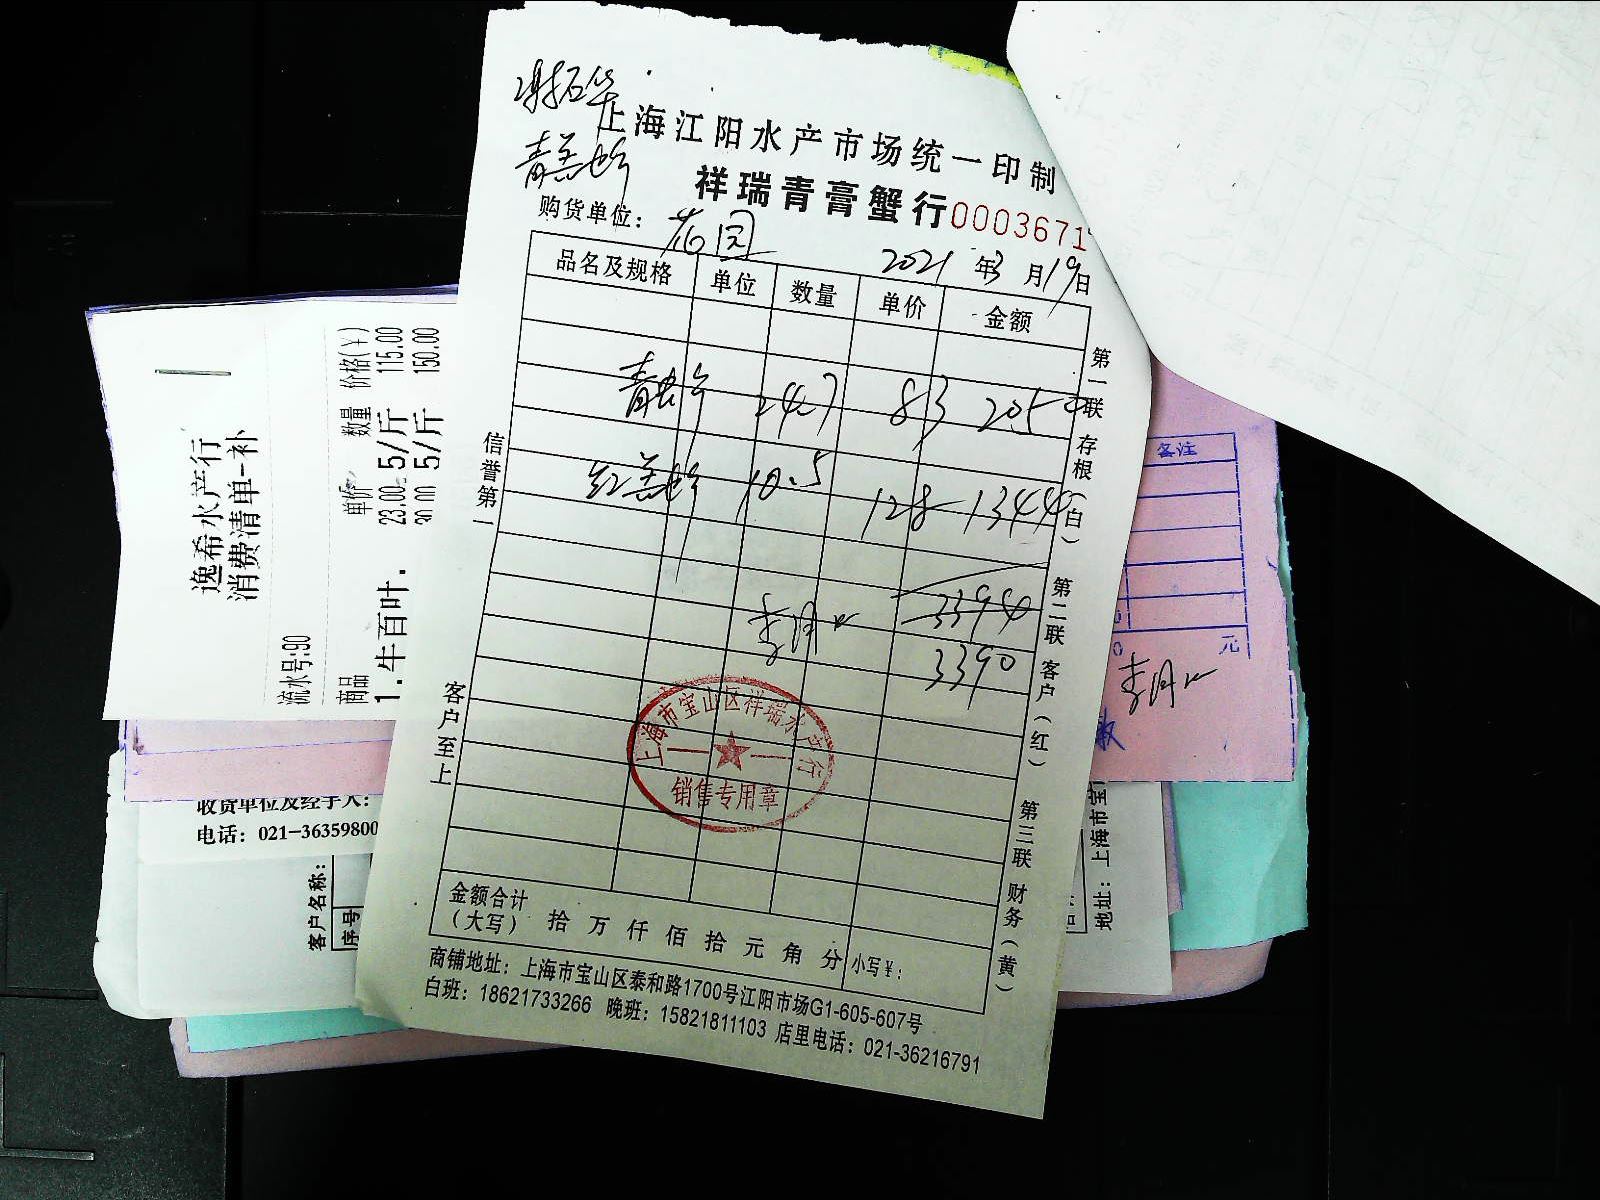 上海江阳水产市场统一印制
祥瑞青膏蟹行 0003671
购货单位： 花园
2021 年 3 月 19 日
品名及规格 单位 数量 单价 金额
24.7 83 2050
10.5 128 1344
3394
3390
上海市宝山区祥瑞水产行
销售专用章
金额合计
（大写） 拾 万 仟 佰 拾 元 角 分 小写￥：
商铺地址：上海市宝山区泰和路1700号江阳市场G1-605-607号
白班：18621733266 晚班：15821811103 店里电话：021-36216791
信誉第一
客户至上
第一联 存根（白）
第二联 客户（红）
第三联 财务（黄）
逸希水产行
消费清单-补
流水号:90
商品 单价 数量 价格(￥)
1.牛百叶. 23.00 5/斤 115.00
30.00 5/斤 150.00
收货单位及经手人：
电话：021-36359800
客户名称：
序号
备注
元
地址：上海市宝